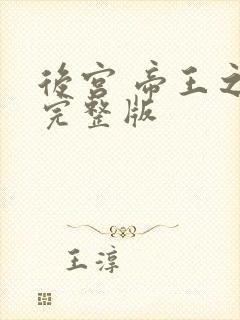 後宮 帝王之
完整版
王淳